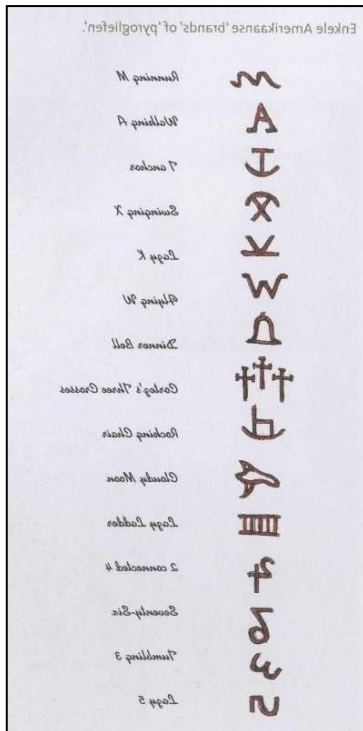 Enkele Amerikaanse 'brands' of 'pyrogliefen'.
Running M
Walking A
T anchor
Swinging X
Lazy K
Flying W
Dinner Bell
Cortez's Three Crosses
Rocking Chair
Cloudy Moon
Lazy Ladder
2 connected 4
Seventy-Six
Tumbling 3
Lazy 5